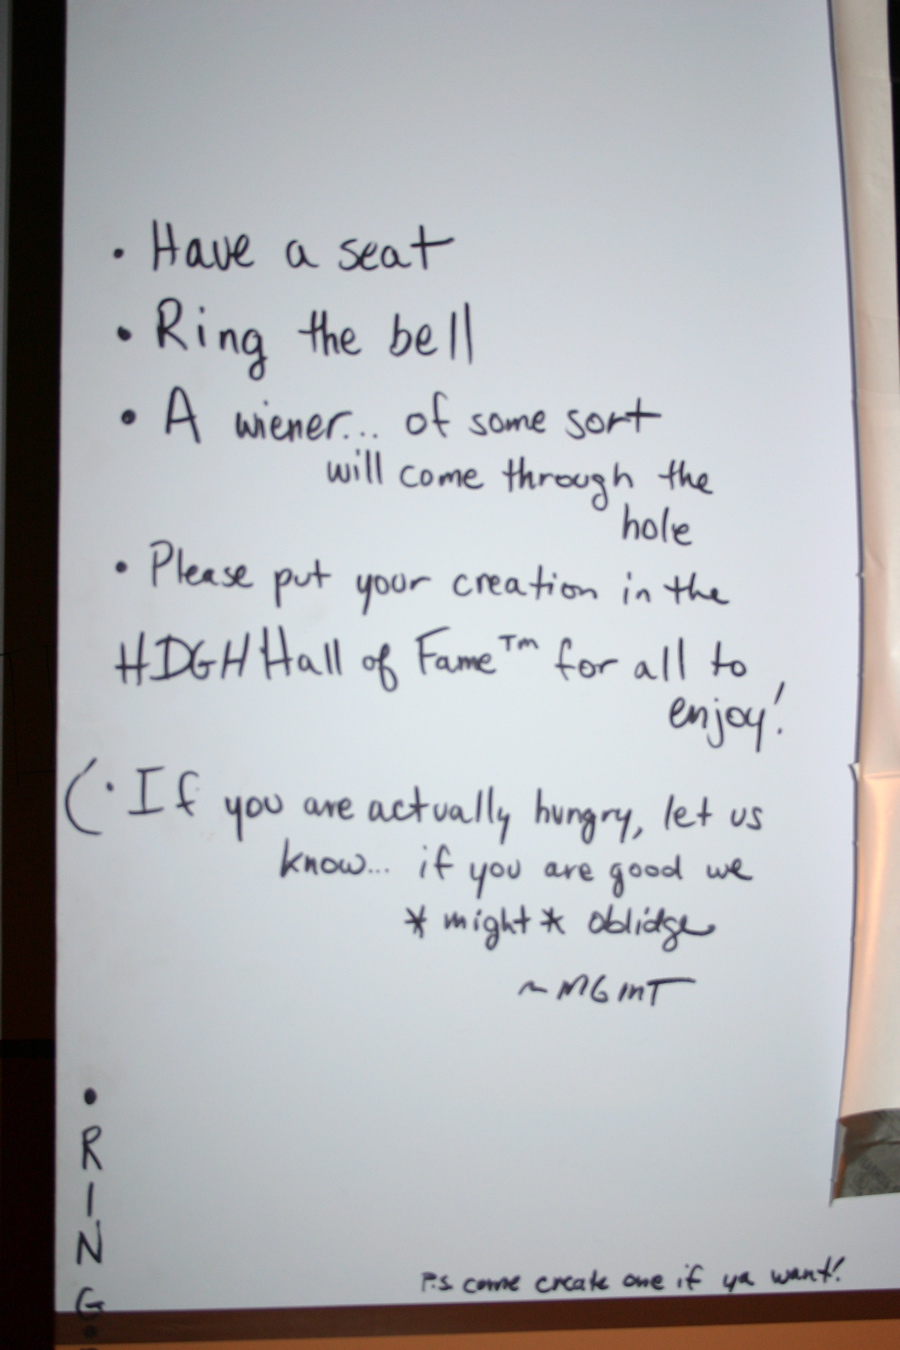 • Have a seat
• Ring the bell
• A wiener... of some sort
will come through the
hole
• Please put your creation in the
HDGH Hall of Fame™ for all to
enjoy!
(• If you are actually hungry, let us
know... if you are good we
*might* oblidge
~MGMT
• RING •
P.S come create one if ya want!